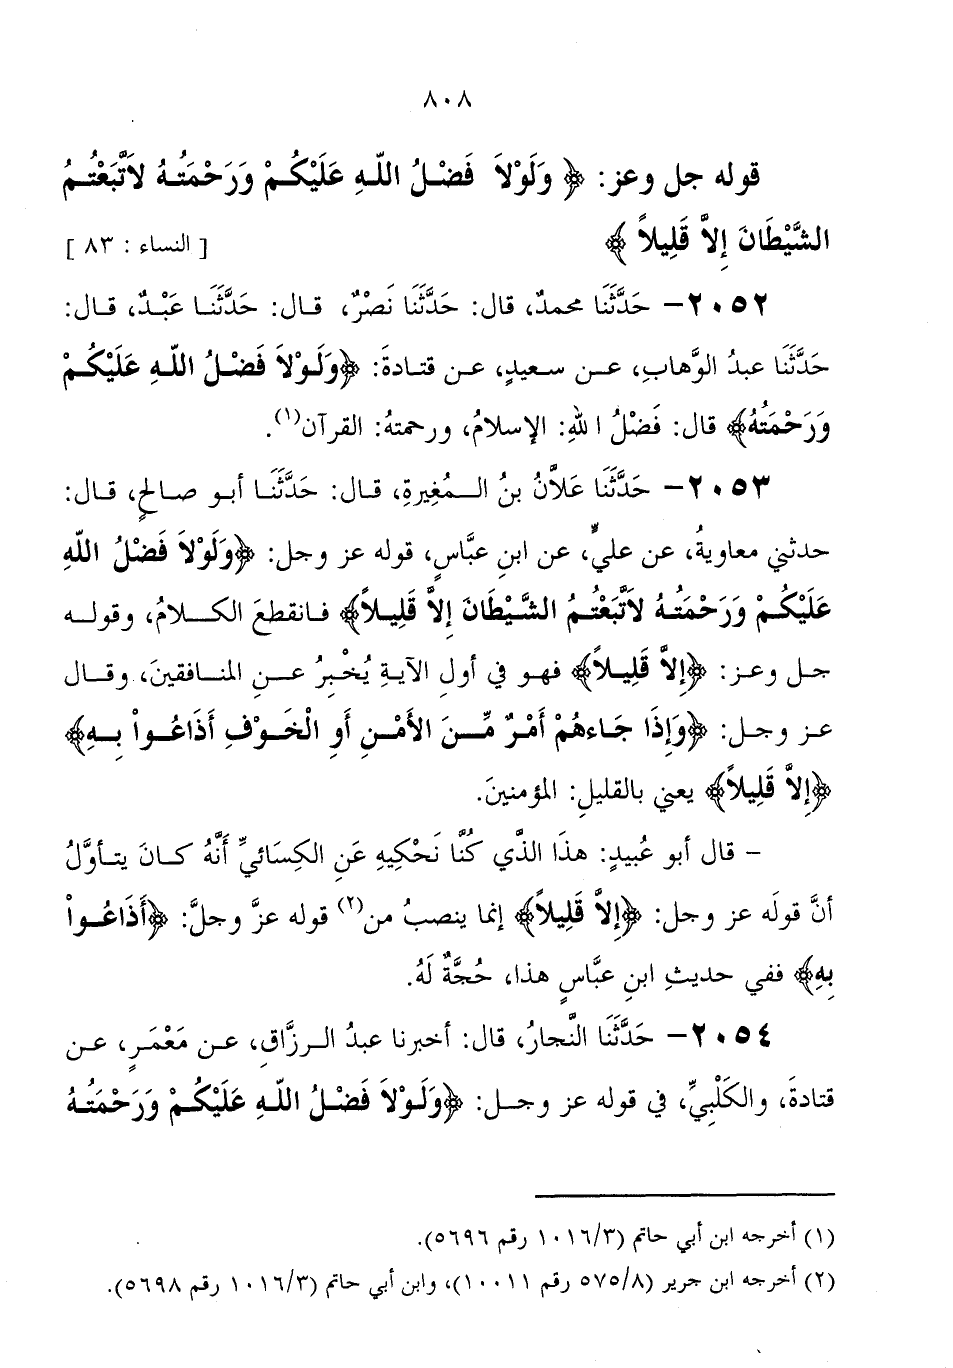 ٨٠٨
قوله جل وعز: ﴿ وَلَوْلاَ فَضْلُ اللّهِ عَلَيْكُمْ وَرَحْمَتُهُ لاَتَّبَعْتُمُ
الشَّيْطَانَ إِلاَّ قَلِيلاً ﴾ [ النساء : ٨٣ ]
٢٠٥٢- حَدَّثَنَا محمدٌ، قال: حَدَّثَنَا نَصْرٌ، قال: حَدَّثَنَا عَبْدٌ، قال:
حَدَّثَنَا عبدُ الوَّهابِ، عن سعيدٍ، عن قتادةَ: ﴿وَلَوْلاَ فَضْلُ اللّهِ عَلَيْكُمْ
وَرَحْمَتُهُ﴾ قال: فَضْلُ اللهِ: الإسلامُ، ورحمتهُ: القرآن(١).
٢٠٥٣- حَدَّثَنَا عَلاَّنُ بنُ المُغِيرةِ، قال: حَدَّثَنَا أبو صالحٍ، قال:
حدثني معاويةُ، عن عليٍّ، عن ابنِ عبَّاسٍ، قوله عز وجل: ﴿وَلَوْلاَ فَضْلُ اللّهِ
عَلَيْكُمْ وَرَحْمَتُهُ لاَتَّبَعْتُمُ الشَّيْطَانَ إِلاَّ قَلِيلاً﴾ فانقطعَ الكلامُ، وقوله
جل وعز: ﴿إِلاَّ قَلِيلاً﴾ فهو في أولِ الآيةِ يُخْبِرُ عنِ المنافقينَ، وقال
عز وجل: ﴿وَإِذَا جَاءهُمْ أَمْرٌ مِّنَ الأَمْنِ أَوِ الْخَوْفِ أَذَاعُواْ بِهِ﴾
﴿إِلاَّ قَلِيلاً﴾ يعني بالقليلِ: المؤمنينَ.
- قال أبو عُبيدٍ: هذَا الذَّي كُنَّا نَحْكِيهِ عَنِ الكِسَائيِّ أَنَّهُ كانَ يتأوَّلُ
أنَّ قولَه عز وجل: ﴿إِلاَّ قَلِيلاً﴾ إنما ينصبُ من(٢) قوله عزَّ وجلَّ: ﴿أَذَاعُواْ
بِهِ﴾ ففي حديثِ ابنِ عبَّاسٍ هذا، حُجَّةٌ لَهُ.
٢٠٥٤- حَدَّثَنَا النَّجارُ، قال: أخبرنا عبدُ الرزَّاقِ، عن مَعْمَرٍ، عن
قتادةَ، والكَلْبِيِّ، في قوله عز وجل: ﴿وَلَوْلاَ فَضْلُ اللّهِ عَلَيْكُمْ وَرَحْمَتُهُ
(١) أخرجه ابن أبي حاتم (١٠١٦/٣ رقم ٥٦٩٦).
(٢) أخرجه ابن جرير (٥٧٥/٨ رقم ١٠٠١١)، وابن أبي حاتم (١٠١٦/٣ رقم ٥٦٩٨).